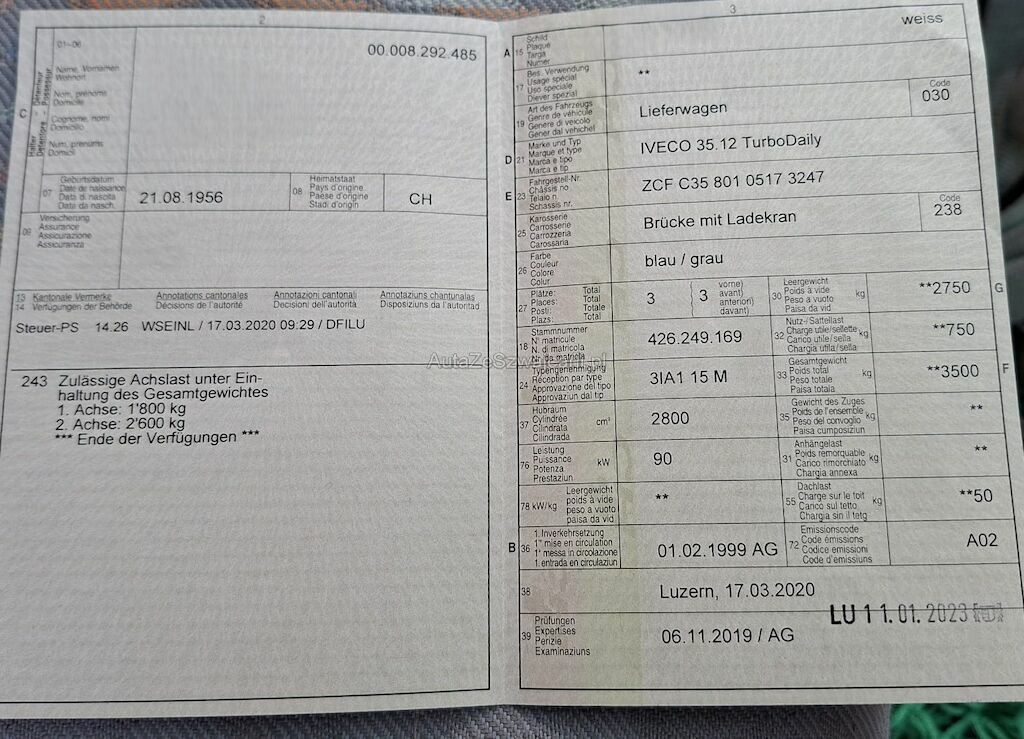 2
01-06
00.008.292.485
C
Halter
Détenteur
Detentore
Possessur
Name, Vornamen
Wohnort
Nom, prénoms
Domicile
Cognome, nomi
Domicilio
Num, prenums
Domicil
07
Geburtsdatum
Date de naissance
Data di nascita
Data da nasch.
21.08.1956
08
Heimatstaat
Pays d'origine
Paese d'origine
Stadi d'origin
CH
09
Versicherung
Assurance
Assicurazione
Assicuranza
13 Kantonale Vermerke
14 Verfügungen der Behörde
Annotations cantonales
Décisions de l'autorité
Annotazioni cantonali
Decisioni dell'autorità
Annotaziuns chantunalas
Disposiziuns da l'autoritad
Steuer-PS 14.26 WSEINL / 17.03.2020 09:29 / DFILU
243 Zulässige Achslast unter Ein-
haltung des Gesamtgewichtes
1. Achse: 1'800 kg
2. Achse: 2'600 kg
*** Ende der Verfügungen ***
3
A 15
Schild
Plaque
Targa
Numer
weiss
17
Bes. Verwendung
Usage spécial
Uso speciale
Diever spezial
**
19
Art des Fahrzeugs
Genre de véhicule
Genere di veicolo
Gener dal vehichel
Lieferwagen
Code
030
D 21
Marke und Typ
Marque et type
Marca e tipo
Marca e tip
IVECO 35.12 TurboDaily
E 23
Fahrgestell-Nr.
Châssis no
Telaio n.
Schassis nr.
ZCF C35 801 0517 3247
25
Karosserie
Carrosserie
Carrozzeria
Carossaria
Brücke mit Ladekran
Code
238
26
Farbe
Couleur
Colore
Colur
blau / grau
27
Plätze: Total
Places: Total
Posti: Totale
Plazs: Total
3
3
vorne)
avant)
anteriori)
davant)
30
Leergewicht
Poids à vide
Peso a vuoto
Paisa da vid
kg
**2750
G
18
Stammnummer
N° matricule
N. di matricola
Nr. da matricla
426.249.169
32
Nutz-/Sattellast
Charge utile/sellette
Carico utile/sella
Chargia utila/sella
kg
**750
24
Typengenehmigung
Réception par type
Approvazione del tipo
Approvaziun dal tip
3IA1 15 M
33
Gesamtgewicht
Poids total
Peso totale
Paisa totala
kg
**3500
F
37
Hubraum
Cylindrée
Cilindrata
Cilindrada
cm³
2800
35
Gewicht des Zuges
Poids de l'ensemble
Peso del convoglio
Paisa cumposiziun
kg
**
76
Leistung
Puissance
Potenza
Prestaziun
kW
90
31
Anhängelast
Poids remorquable
Carico rimorchiato
Chargia annexa
kg
**
78 kW/kg
Leergewicht
poids à vide
peso a vuoto
paisa da vid
**
55
Dachlast
Charge sur le toit
Carico sul tetto
Chargia sin il tetg
kg
**50
B 36
1. Inverkehrsetzung
1re mise en circulation
1a messa in circolazione
1. entrada en circulaziun
01.02.1999 AG
72
Emissionscode
Code émissions
Codice emissioni
Code d'emissiuns
A02
38
Luzern, 17.03.2020
LU 11.01.2023
39
Prüfungen
Expertises
Perizie
Examinaziuns
06.11.2019 / AG
AutaZeSzwajcarii.pl